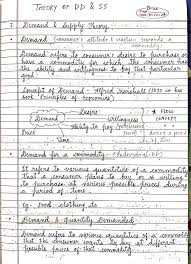 THEORY OF DD & SS
I Demand & Supply Theory.
Demand consumer's attitude & reaction towards a commodity
Demand refers to consumer's desire to purchase or
have a commodity for which the consumer has
the ability and willingness to buy that particular
good.
Concept of Demand - Alfred Marshall 1890 in his
book 'Principles of economics'
Desire
Demand
Ability to pay
Willingness to buy
A FLOW
CONCEPT
Price
Time
Demand for a commodity
It refers to various quantities of a commodity
that a consumer plans to buy or is willing
to purchase at various possible prices during
period of time.
eg- Food, clothing to
Demand & Quantity Demanded
Demand refers to various quantities of a commodity
that the consumer wants to buy at different
possible prices of that commodity.